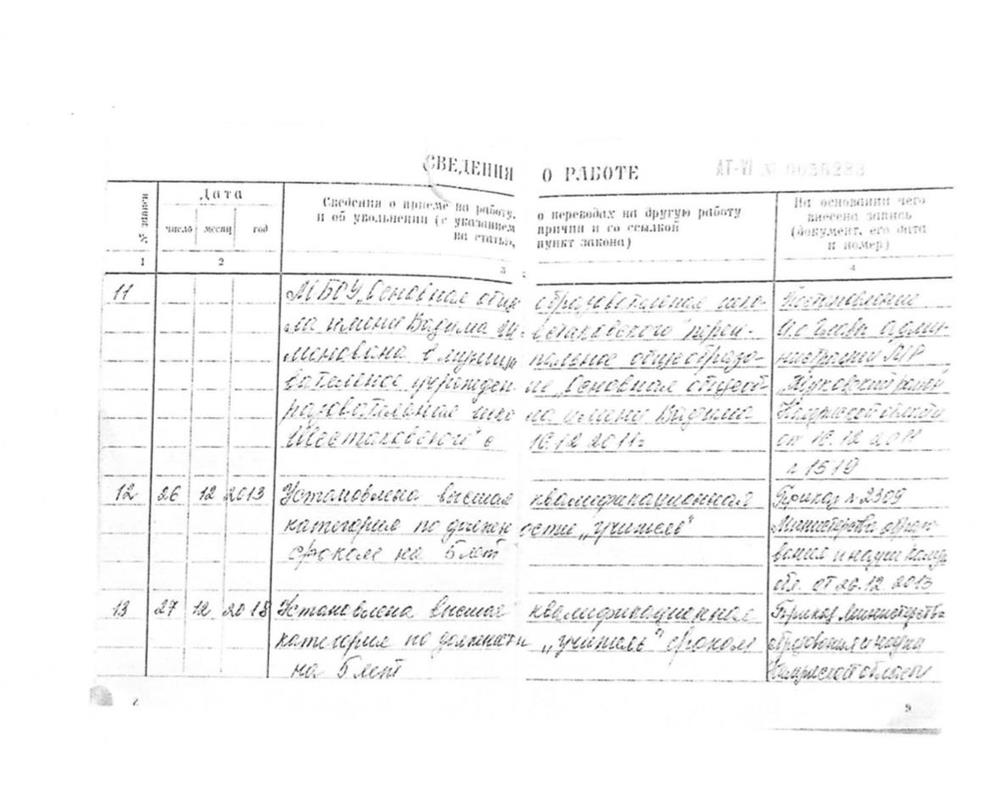 СВЕДЕНИЯ О РАБОТЕ
AT-VI № 0036283
№ записи
Дата
число месяц год
Сведения о приеме на работу, о переводах на другую работу
и об увольнении (с указанием причин и со ссылкой
на статью, пункт закона)
На основании чего
внесена запись
(документ, его дата
и номер)
1 2 3 4
11 МБОУ „Основная обще образовательная шко-
ла имени Вадима Ши- переи-
менована в муници пальное общеобразо-
вательное учрежден ие „Основная общеоб-
разовательная шко ла имени Вадима
с 16.12.2011г
Постановление
И.о Главы адми-
нистрации МР
„Жуковский район"
Калужской области
от 16.12.2011
№ 1519
12 26 12 2013 Установлена высшая квалификационная
категория по должн ости „учитель"
сроком на 5 лет
Приказ № 2309
Министерства образо-
вания и науки Калуж
обл. от 26.12.2013
13 27 12 2018 Установлена высшая квалификационная
категория по должности „учитель" сроком
на 5 лет
Приказ Министерства
образования и науки
Калужской области
9